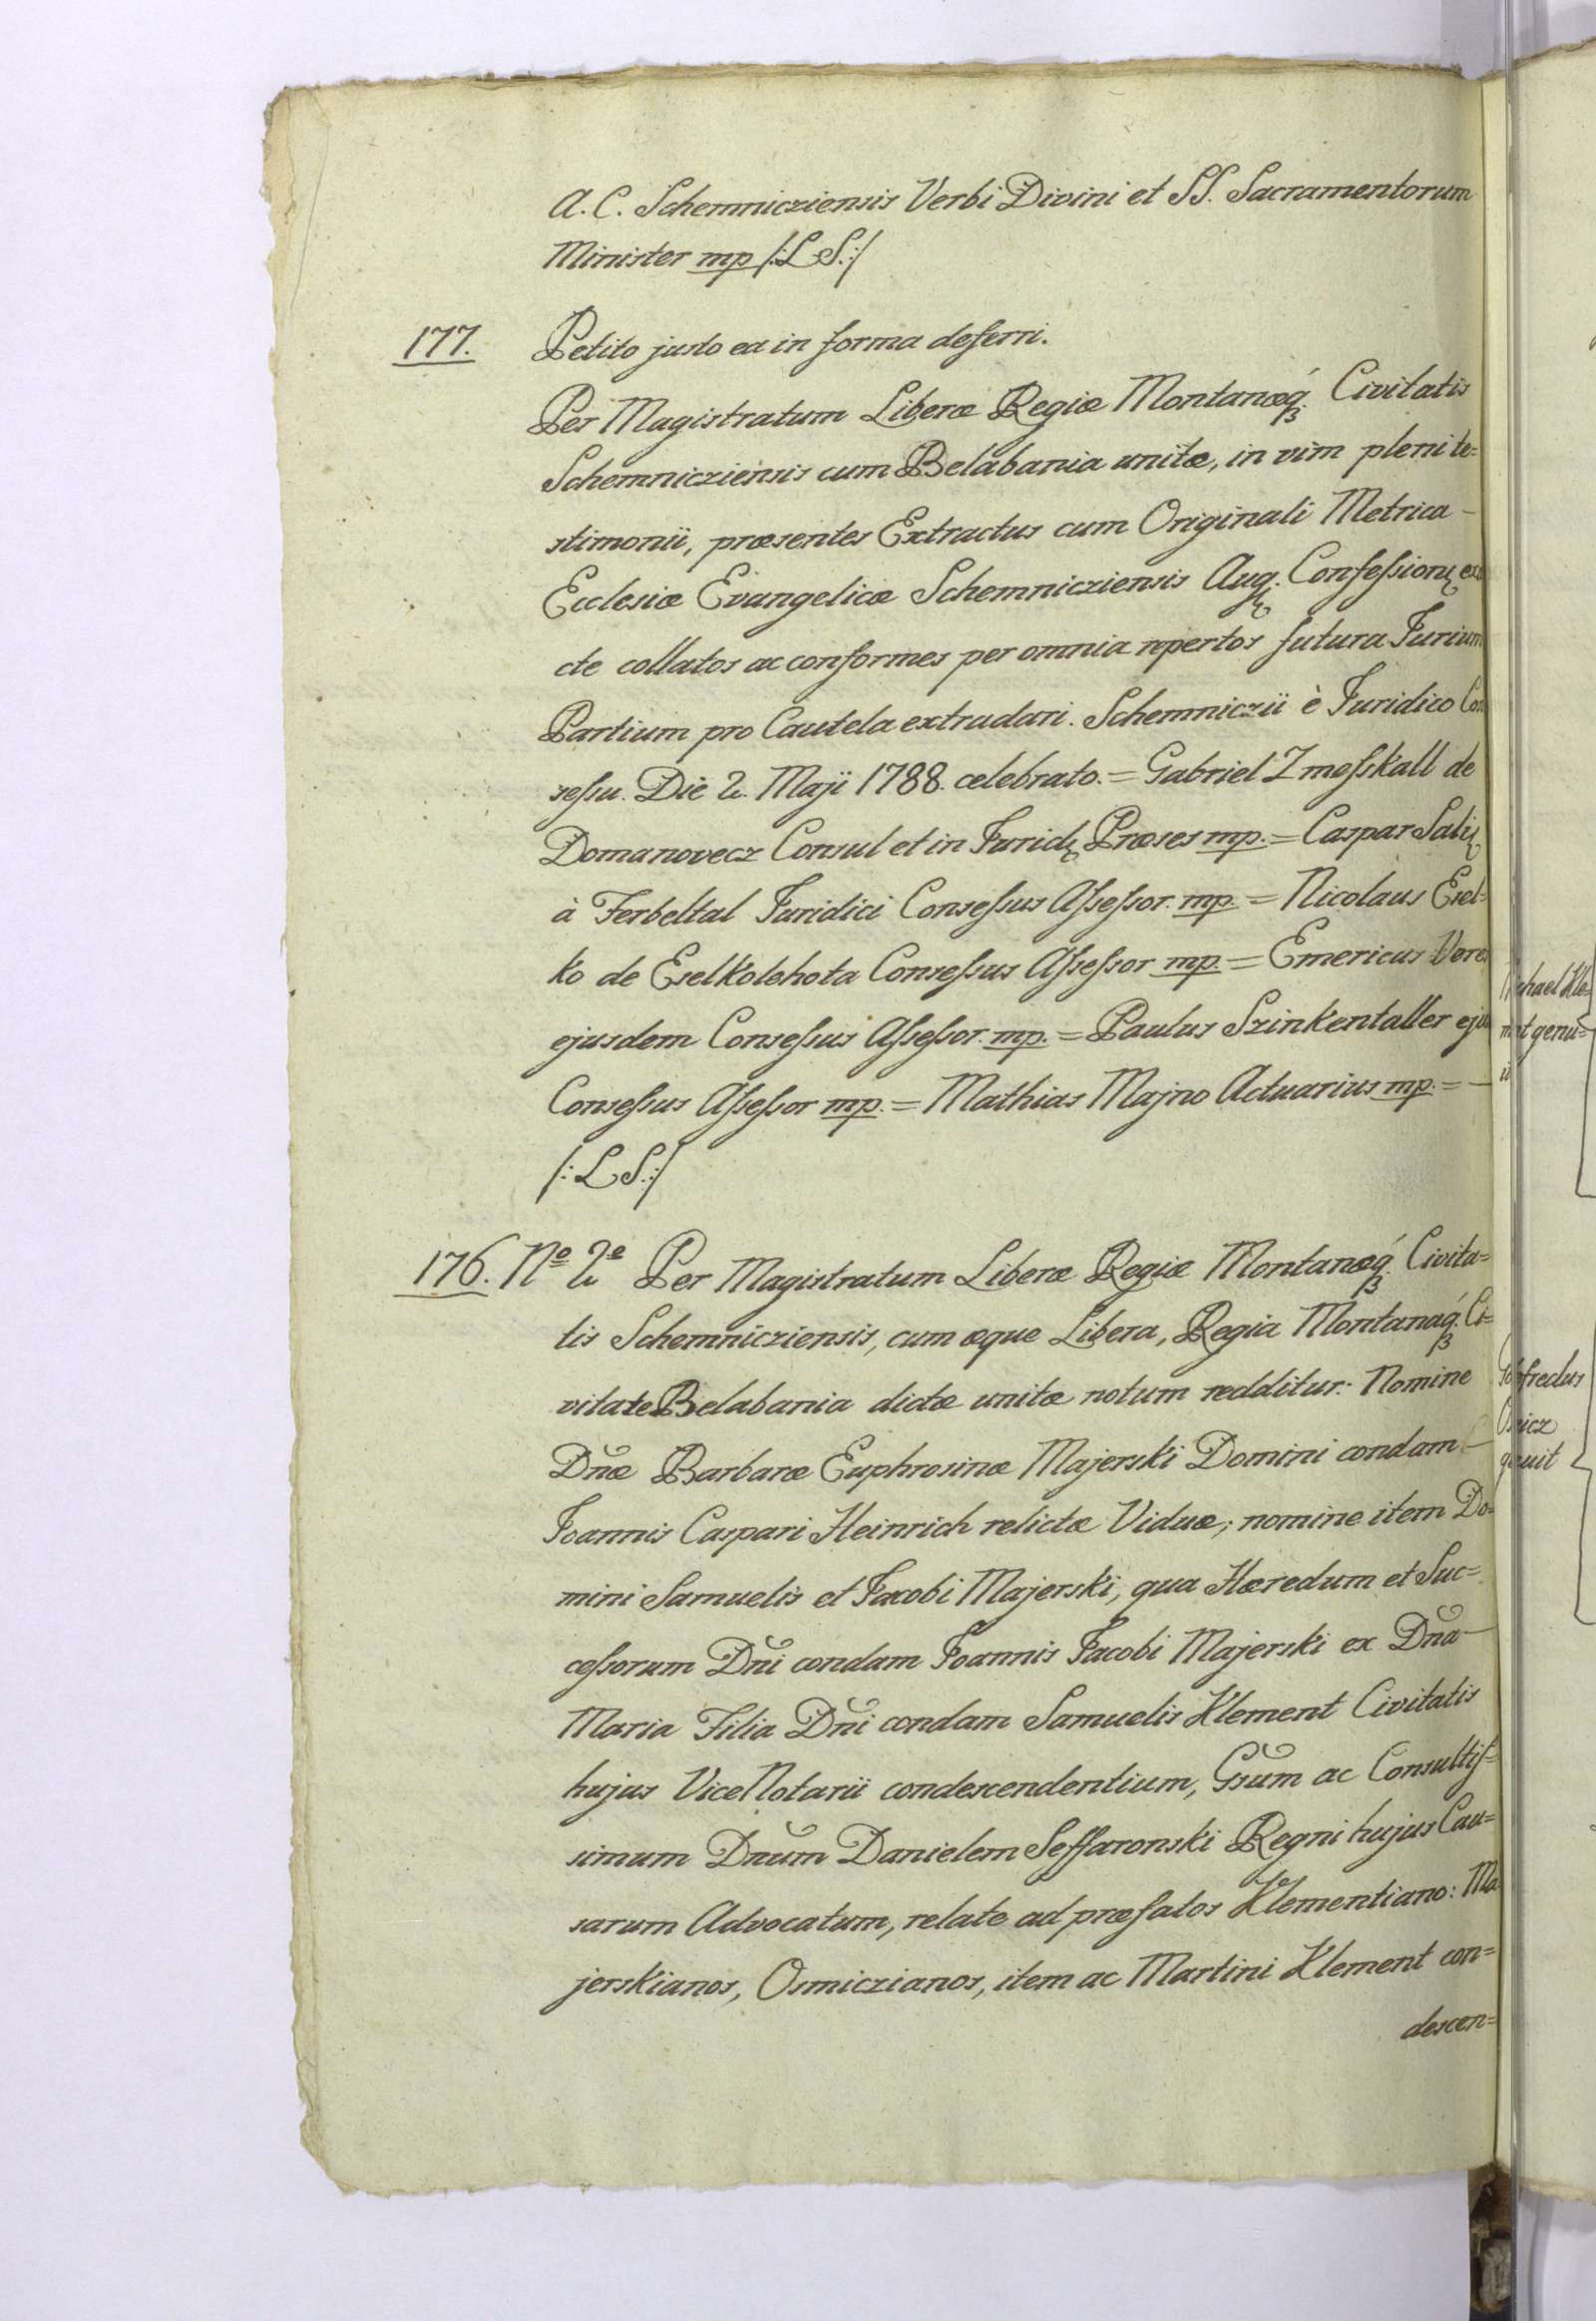 A. C. Schemnicziensis Verbi Divini et SS. Sacramentorum
Minister mp /:L S.:/
177. Petito justo ea in forma deferri.
Per Magistratum Liberæ Regiæ Montanæq́ꝫ Civitatis
Schemnicziensis cum Belabania unitæ, in vim pleni te=
stimonii, præsentes Extractus cum Originali Metrica –
Ecclesiæ Evangelicæ Schemnicziensis Aug. Confessionꝭ exa
cte collatos ac conformes per omnia repertos futura Jurium
Partium pro Cautela extradari. Schemniczii è Juridico Con
sessu. Die 2. Maji 1788. celebrato. = Gabriel Zmesskall de
Domanovecz Consul et in Juridꝭ Præses mp. = Caspar Salꝭ
à Ferbeltal Juridici Consessus Assessor. mp. = Nicolaus Esel=
ko de Eselkolehota Consessus Assessor mp. = Emericus Veres
ejusdem Consessus Assessor. mp. = Paulus Szinkentaller ejus
Consessus Assessor mp. = Mathias Majno Actuarius mp. = –
/: L S.:/
176. Nº 2º Per Magistratum Liberæ Regiæ Montanæq́ꝫ Civita=
tis Schemnicziensis, cum æque Libera, Regia Montanaq́ꝫ Ci=
vitate Belabania dictæ unitæ notum redditur: Nomine
Dnæ Barbaræ Euphrosinæ Majerski Domini condam –
Joannis Caspari Heinrich relictæ Viduæ; nomine item Do=
mini Samuelis et Jacobi Majerski, qua Hæredum et Suc=
cessorum Dni condam Joannis Jacobi Majerski ex Dna –
Maria Filia Dni condam Samuelis Klement Civitatis
hujus ViceNotarii condescendentium, Gsum ac Consultis=
simum Dnum Danielem Seffaronski Regni hujus Cau=
sarum Advocatum, relate ad præfatos Klementiano: Ma
jerskianos, Osmiczianos, item ac Martini Klement con=
descen=